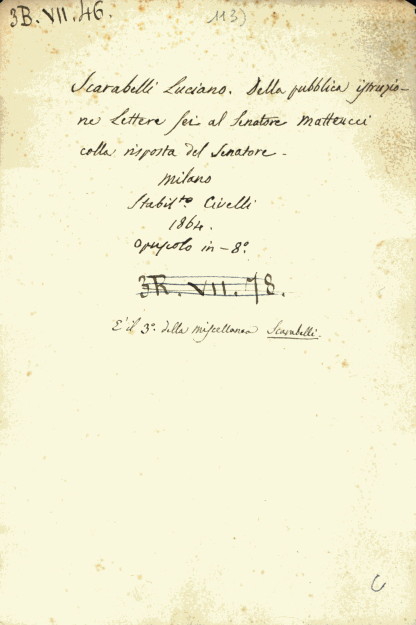 3B. VII. 46.
113)
Scarabelli Luciano. Della pubblica istruzio-
ne Lettere sei al Senatore Matteucci
colla risposta del Senatore.
Milano
Stabil.to Civelli
1864.
Opuscolo in-8°.
3R. VII. 78.
E' il 3°. della miscellanea Scarabelli.